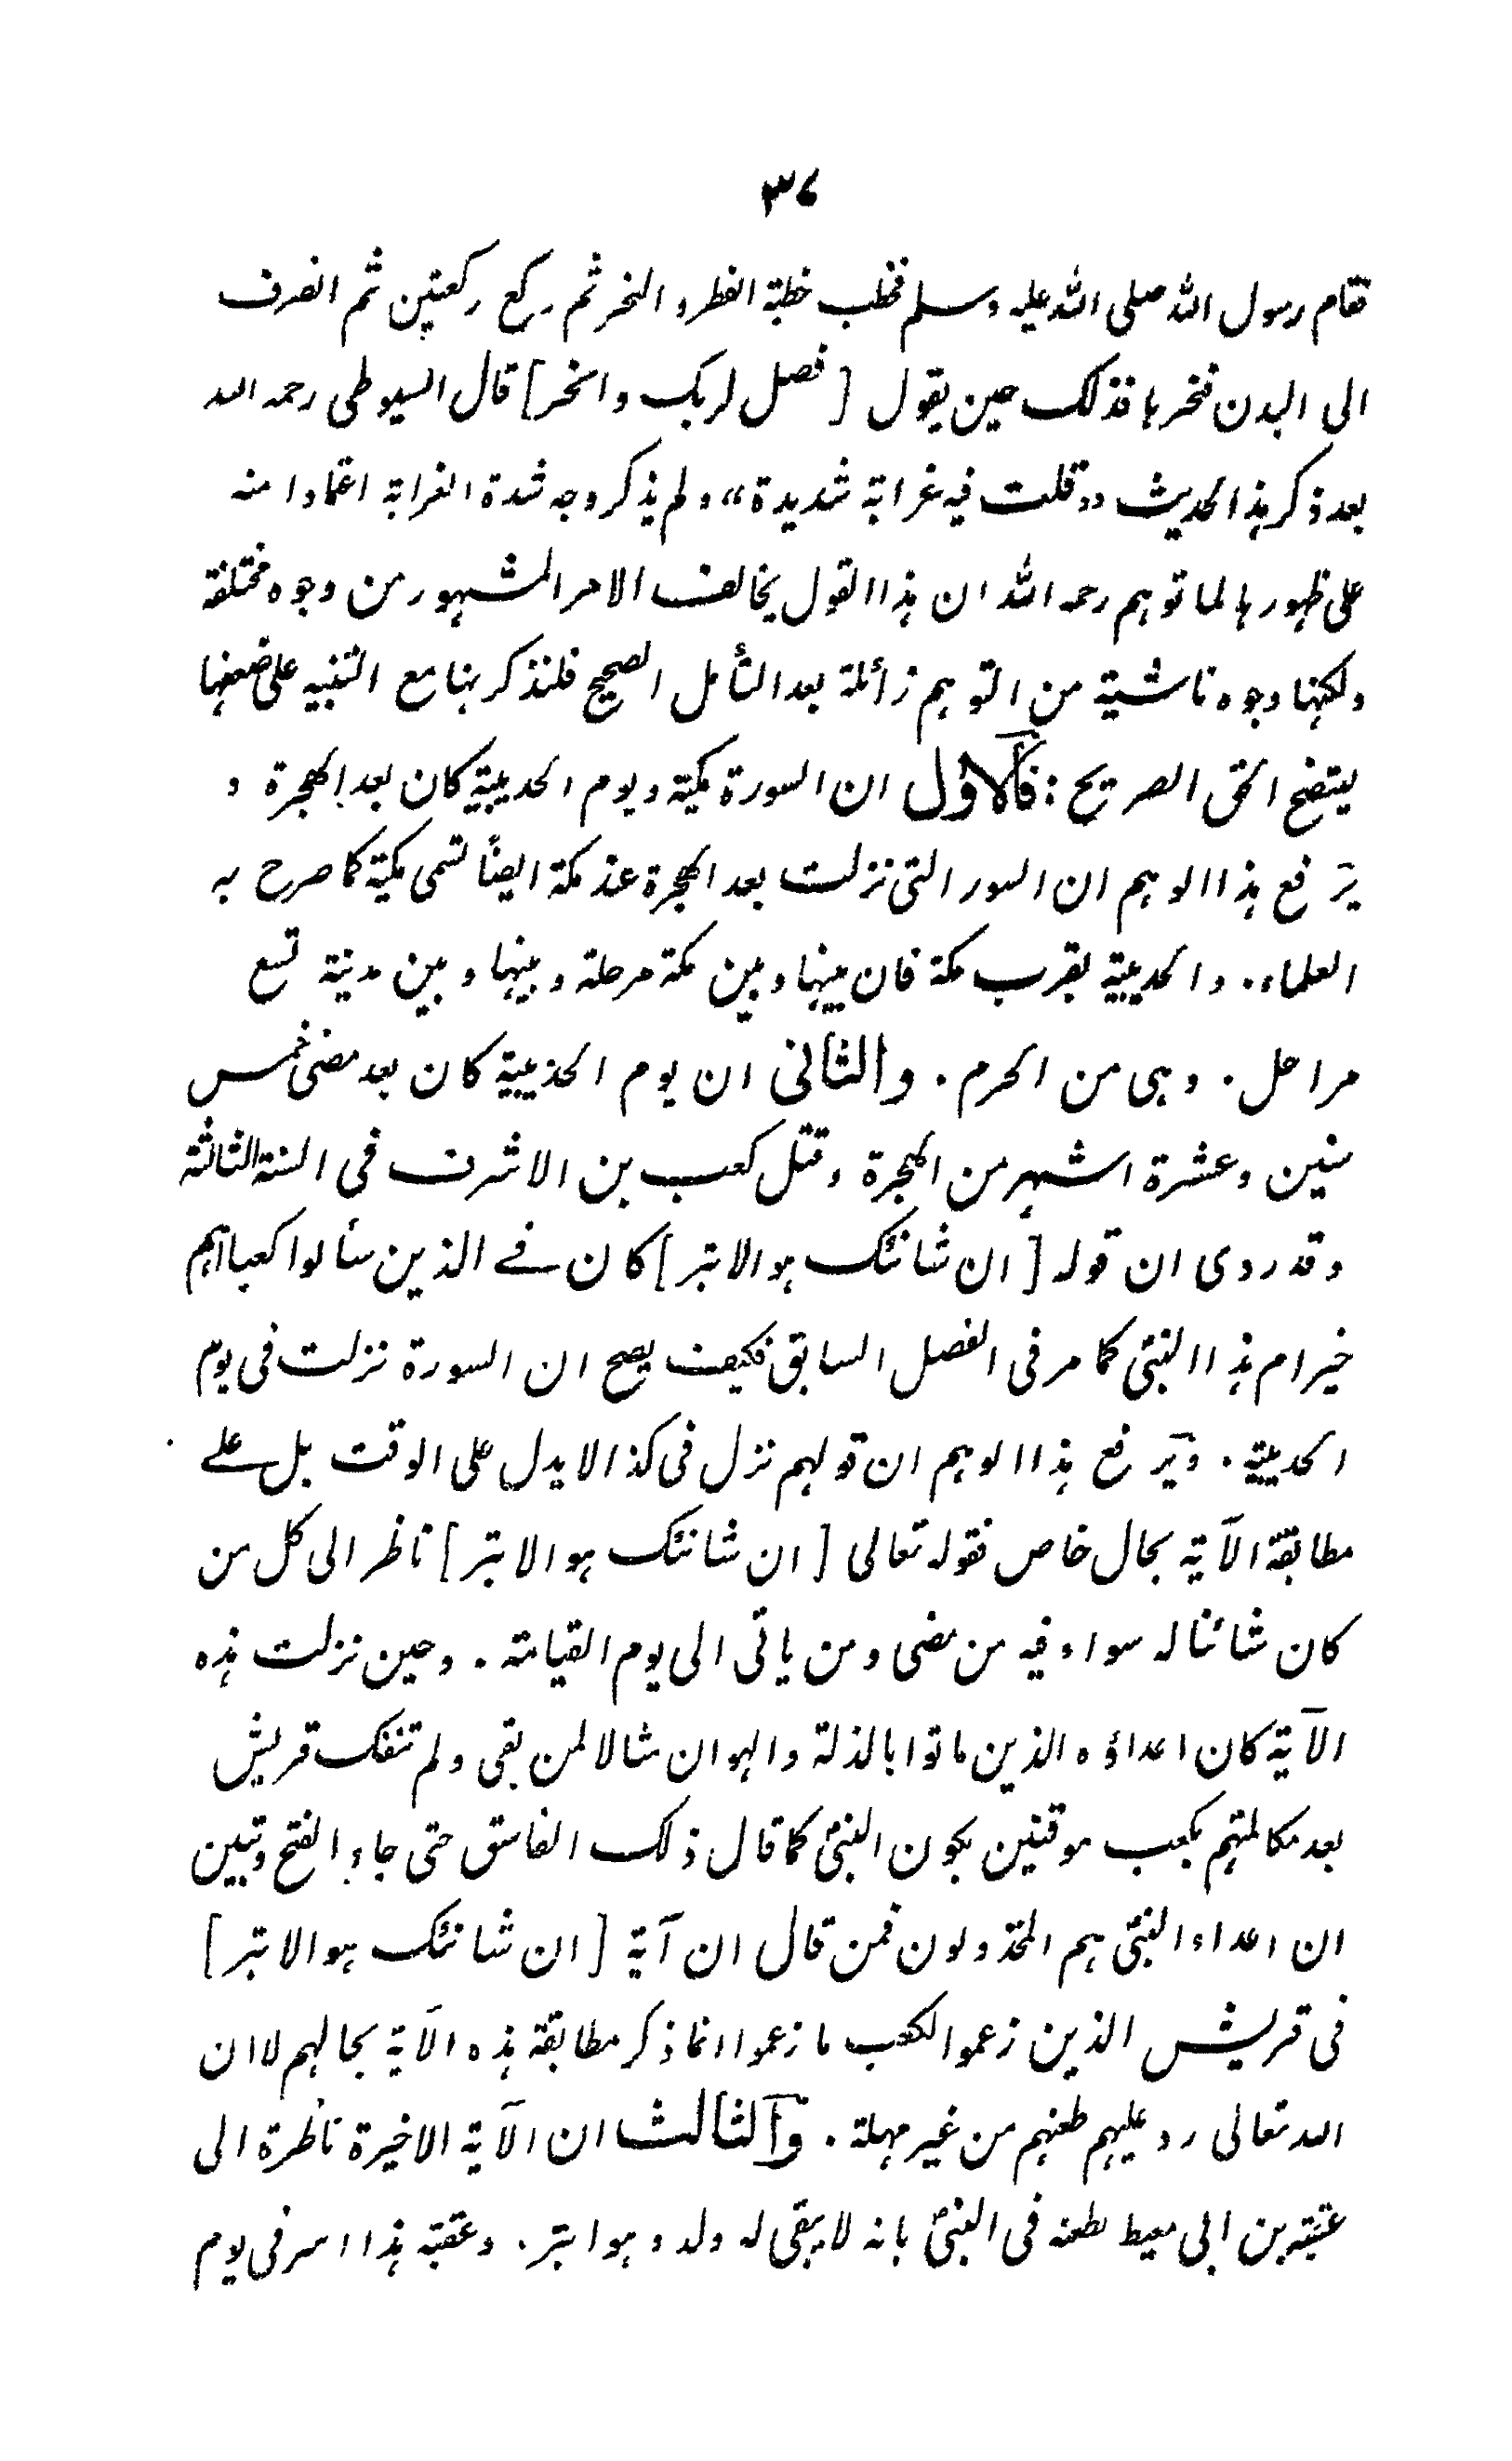 ٣٧
فقام رسول الله صلى الله عليه وسلم فخطب خطبة الفطر والنحر ثم ركع ركعتين ثم انصرف
الى البدن فنحرها فذلك حين يقول [فصل لربك وانحر] قال السيوطى رحمه الله
بعد ذكر هذا الحديث ”قلت فيه غرابة شديدة“ ولم يذكر وجه شدة الغرابة اعتمادا منه
على ظهورها لما توهم رحمه الله ان هذا القول يخالف الامر المشهور من وجوه مختلفة
ولكنها وجوه ناشية من التوهم زائلة بعد التأمل الصحيح فلنذكرها هنا مع التنبيه على ضعفها
ليتضح الحق الصريح: فالاول ان السورة مكية ويوم الحديبية كان بعد الهجرة و
يرفع هذا الوهم ان السور التى نزلت بعد الهجرة عند مكة ايضًا تسمى مكية كما صرح به
العلماء. والحديبية بقرب مكة فان بينها وبين مكة مرحلة وبينها وبين مدينة تسع
مراحل. وهى من الحرم. والثانى ان يوم الحديبية كان بعد مضى خمس
سنين وعشرة اشهر من الهجرة وقتل كعب بن الاشرف فى السنة الثالثة
وقد روى ان قوله [ان شانئك هو الابتر] كان فى الذين سألوا كعبا أهم
خير ام هذا النبى كما مر فى الفصل السابق فكيف يصح ان السورة نزلت فى يوم
الحديبية. ويرفع هذا الوهم ان قولهم نزل فى كذا لا يدل على الوقت بل على
مطابقة الآية بحال خاص فقوله تعالى [ان شانئك هو الابتر] ناظر الى كل من
كان شانئا له سواء فيه من مضى ومن ياتى الى يوم القيامة. وحين نزلت هذه
الآية كان اعداؤه الذين ماتوا بالذلة والهوان مثالا لمن بقى ولم تنفك قريش
بعد مكالمتهم بكعب موقنين بكون النبى كما قال ذلك الفاسق حتى جاء الفتح وتبين
ان اعداء النبى هم المخذولون فمن قال ان آية [ان شانئك هو الابتر]
فى قريش الذين زعموا لكعب ما زعموا انما ذكر مطابقة هذه الآية بحالهم لا ان
الله تعالى رد عليهم طعنهم من غير مهلة. والثالث ان الآية الاخيرة ناظرة الى
عقبة بن ابى معيط لطعنه فى النبى بانه لا يبقى له ولد وهو ابتر. وعقبة هذا اسر فى يوم